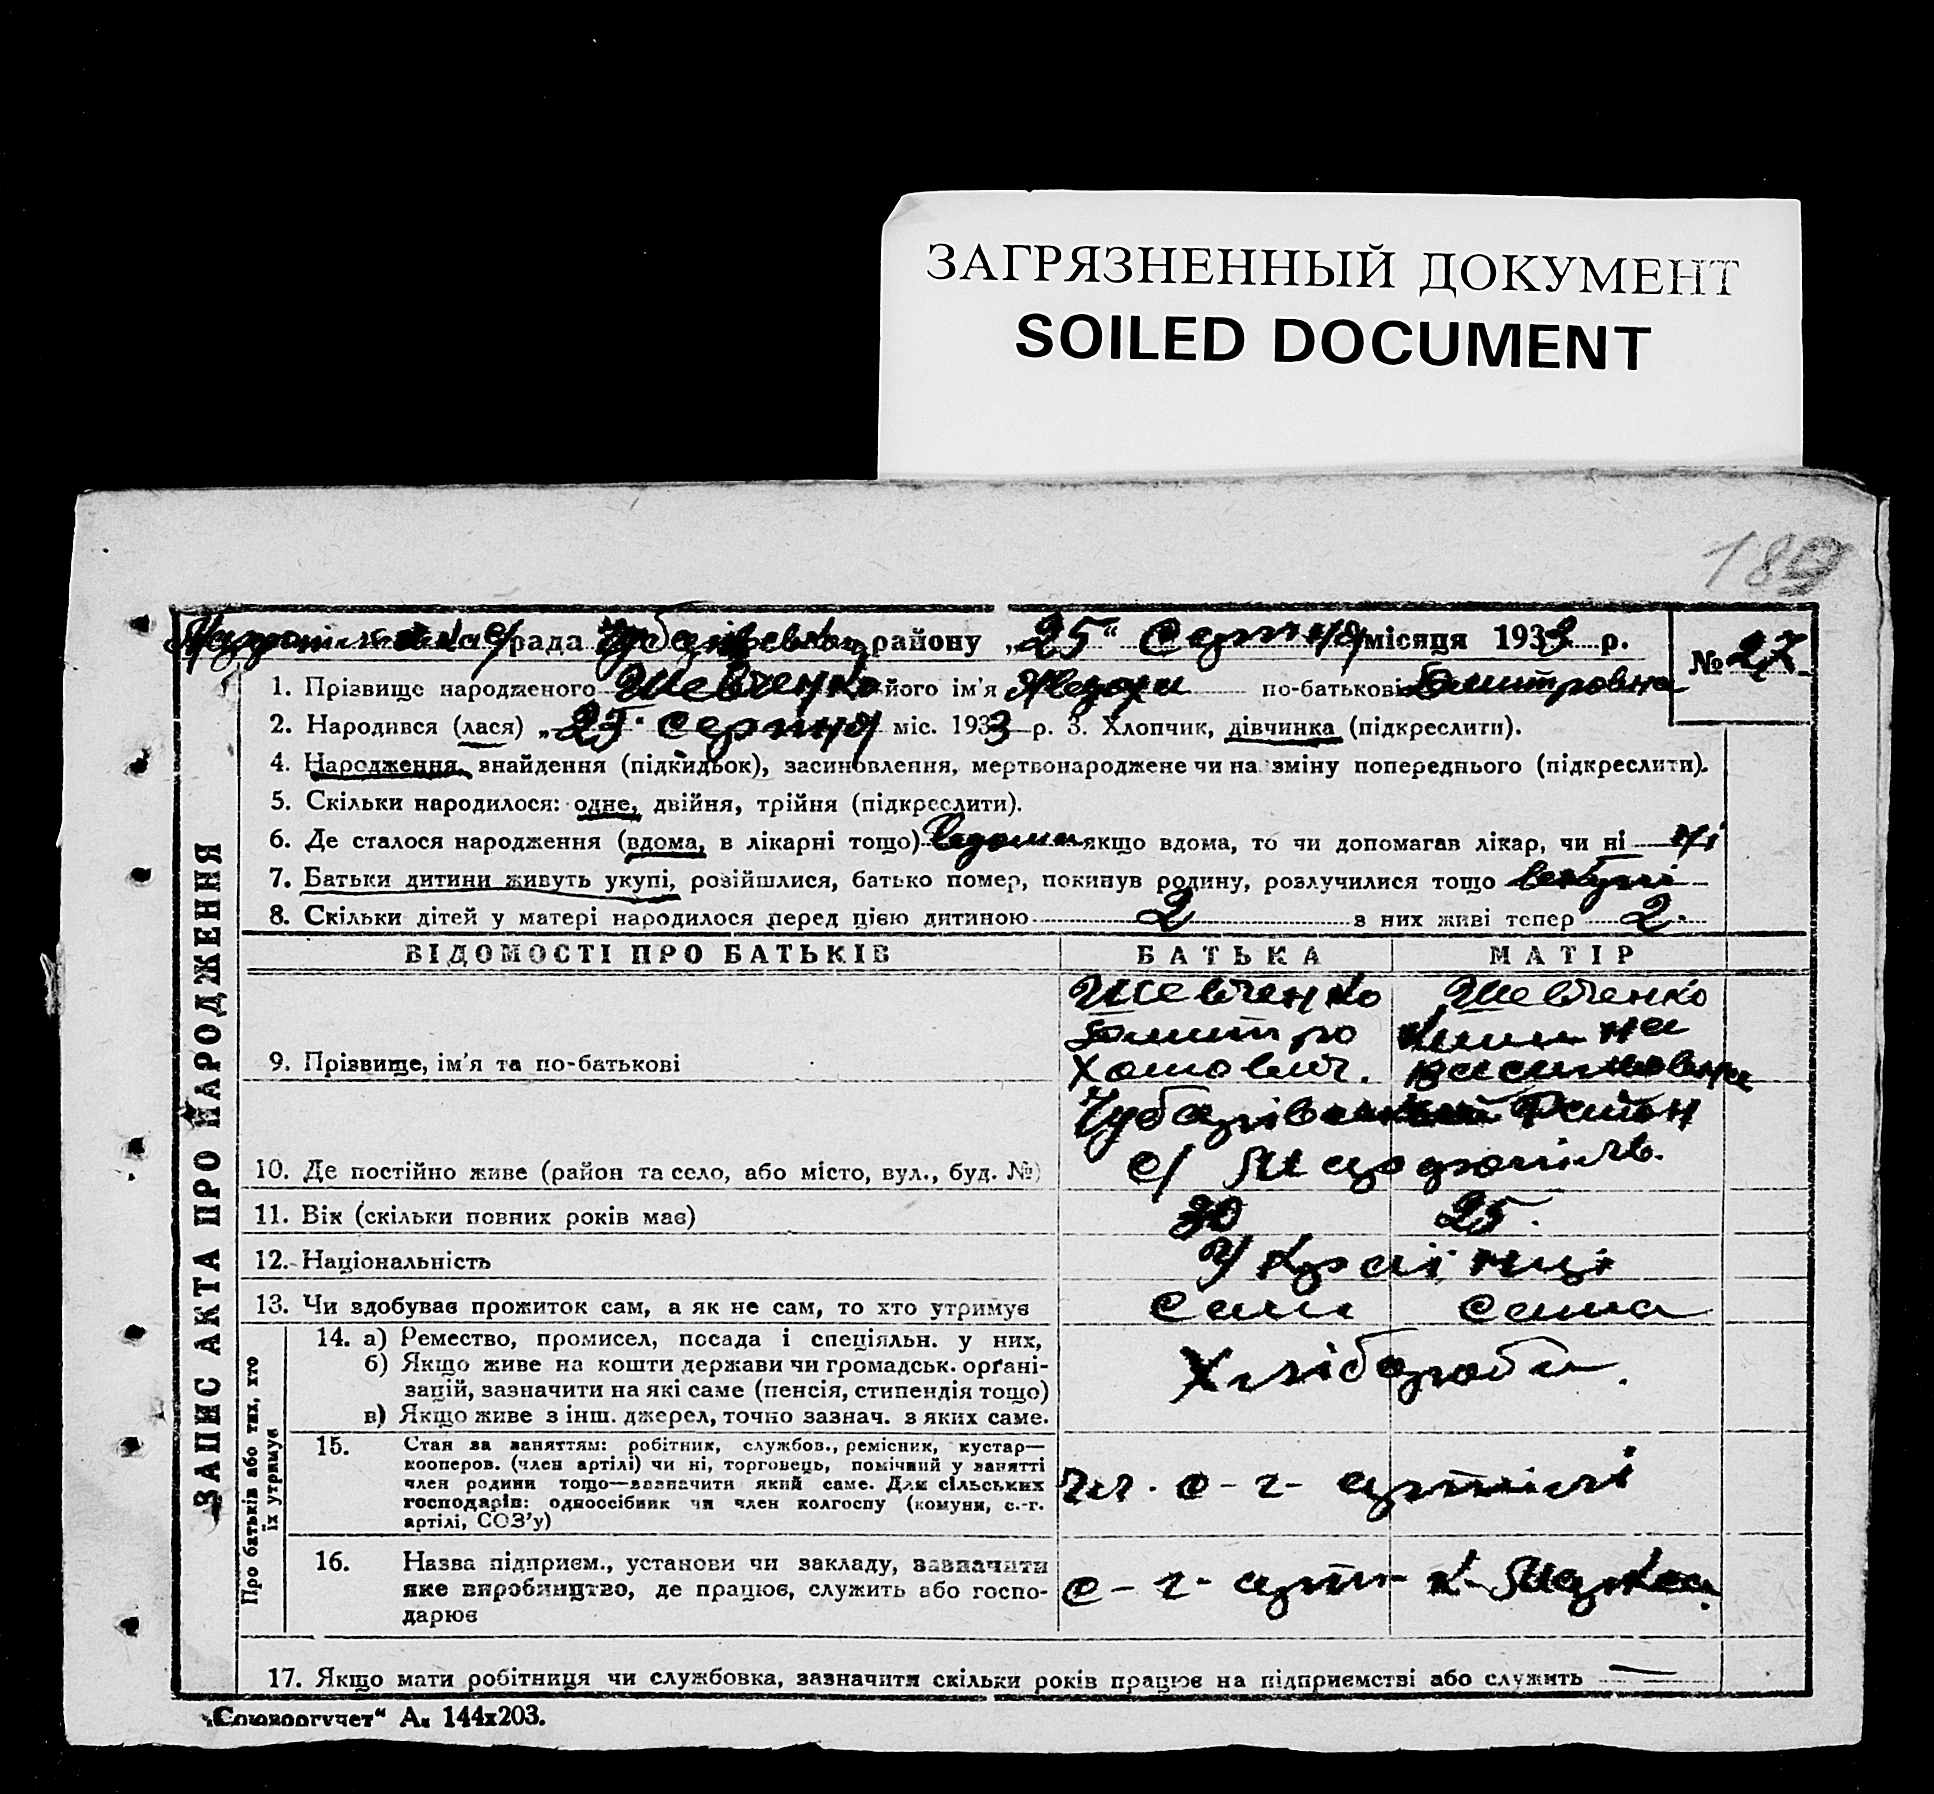 ЗАГРЯЗНЕННЫЙ ДОКУМЕНТ
SOILED DOCUMENT
189
рада Чубарівського району „25“ Серпня місяця 1933 р.
№ 27
1. Прізвище народженого Шевченко його ім'я по-батькові Дмитровна
2. Народився (лася) „25“ серпня міс. 1933 р. 3. Хлопчик, дівчинка (підкреслити).
4. Народження, знайдення (підкидьок), засиновлення, мертвонароджене чи на зміну попереднього (підкреслити).
5. Скільки народилося: одне, двійня, трійня (підкреслити).
6. Де сталося народження (вдома, в лікарні тощо) вдома якщо вдома, то чи допомагав лікар, чи ні ні
7. Батьки дитини живуть укупі, розійшлися, батько помер, покинув родину, розлучилися тощо вкупі
8. Скільки дітей у матері народилося перед цією дитиною 2 з них живі тепер 2.
ЗАПИС АКТА ПРО НАРОДЖЕННЯ
ВІДОМОСТІ ПРО БАТЬКІВ БАТЬКА МАТІР
Шевченко Шевченко
Дмитро
Хомович.
9. Прізвище, ім'я та по-батькові
Чубарівський Район
10. Де постійно живе (район та село, або місто, вул., буд. №)
с/
11. Вік (скільки повних років має) 30 25.
12. Національність Українці
13. Чи здобуває прожиток сам, а як не сам, то хто утримує Сам Сама
Про батьків або тих, хто
їх утримує
14. а) Ремество, промисел, посада і спеціяльн. у них,
б) Якщо живе на кошти держави чи громадськ. орґані-
зацій, зазначити на які саме (пенсія, стипендія тощо)
в) Якщо живе з інш. джерел, точно зазнач. з яких саме.
Хлібороби.
15. Стан за заняттям: робітник, службов., ремісник, кустар—
кооперов. (член артілі) чи ні, торговець, помічний у занятті
член родини тощо—зазначити який саме. Для сільських
господарів: одноосібник чи член колгоспу (комуни, с.-г.
артілі, СОЗ'у)
чл. с-г- артілі
16. Назва підприєм., установи чи закладу, зазначити
яке виробництво, де працює, служить або госпо-
дарює
с-г- арт- К. Маркса.
17. Якщо мати робітниця чи службовка, зазначити скільки років працює на підприємстві або служить —
„Союзоргучет“ А₄ 144х203.